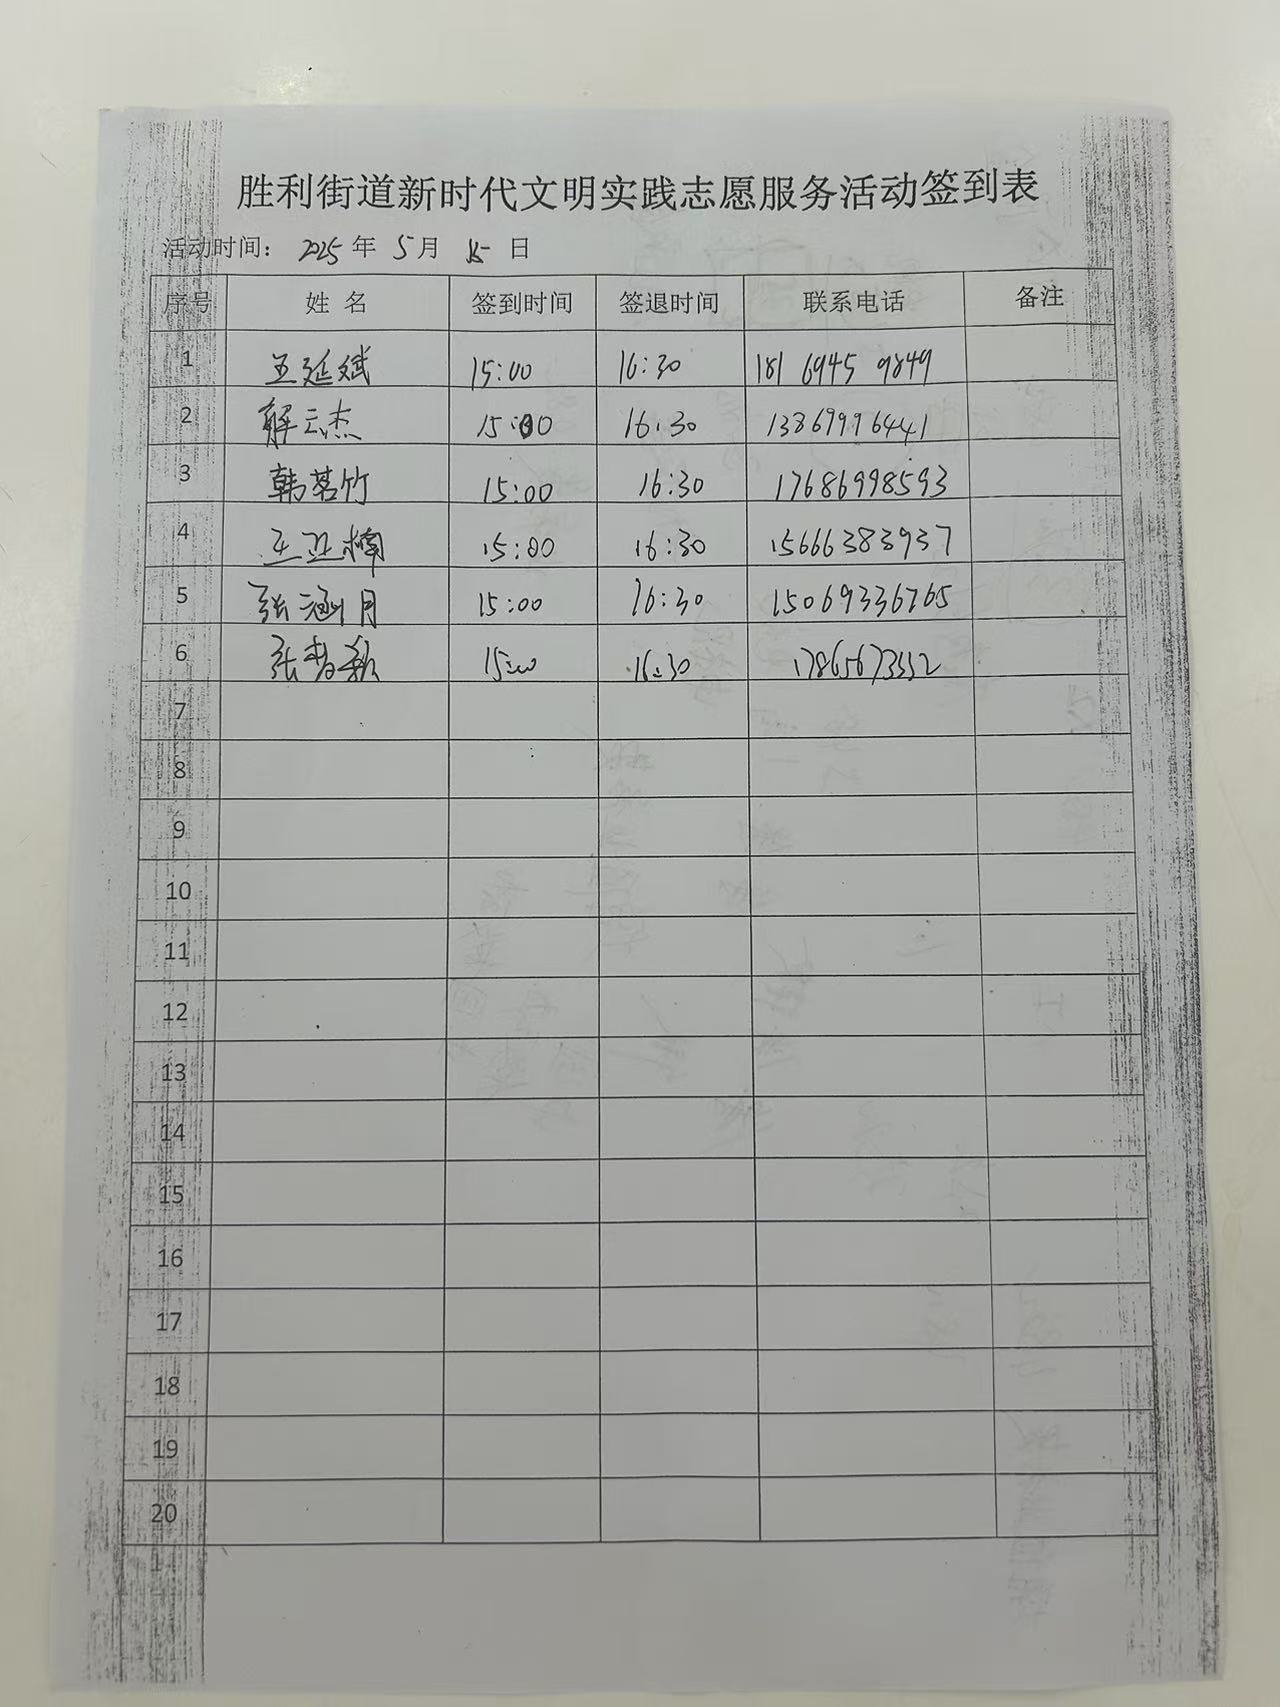 胜利街道新时代文明实践志愿服务活动签到表
活动时间： 2025 年 5 月 15 日
序号 姓 名 签到时间 签退时间 联系电话 备注
1 王延斌 15:00 16:30 181 6945 9849
2 解云杰 15:00 16:30 13869996441
3 韩茗竹 15:00 16:30 17686998593
4 王亚楠 15:00 16:30 15666383937
5 张涵月 15:00 16:30 15069336765
6 张 15:00 16:30
7
8
9
10
11
12
13
14
15
16
17
18
19
20